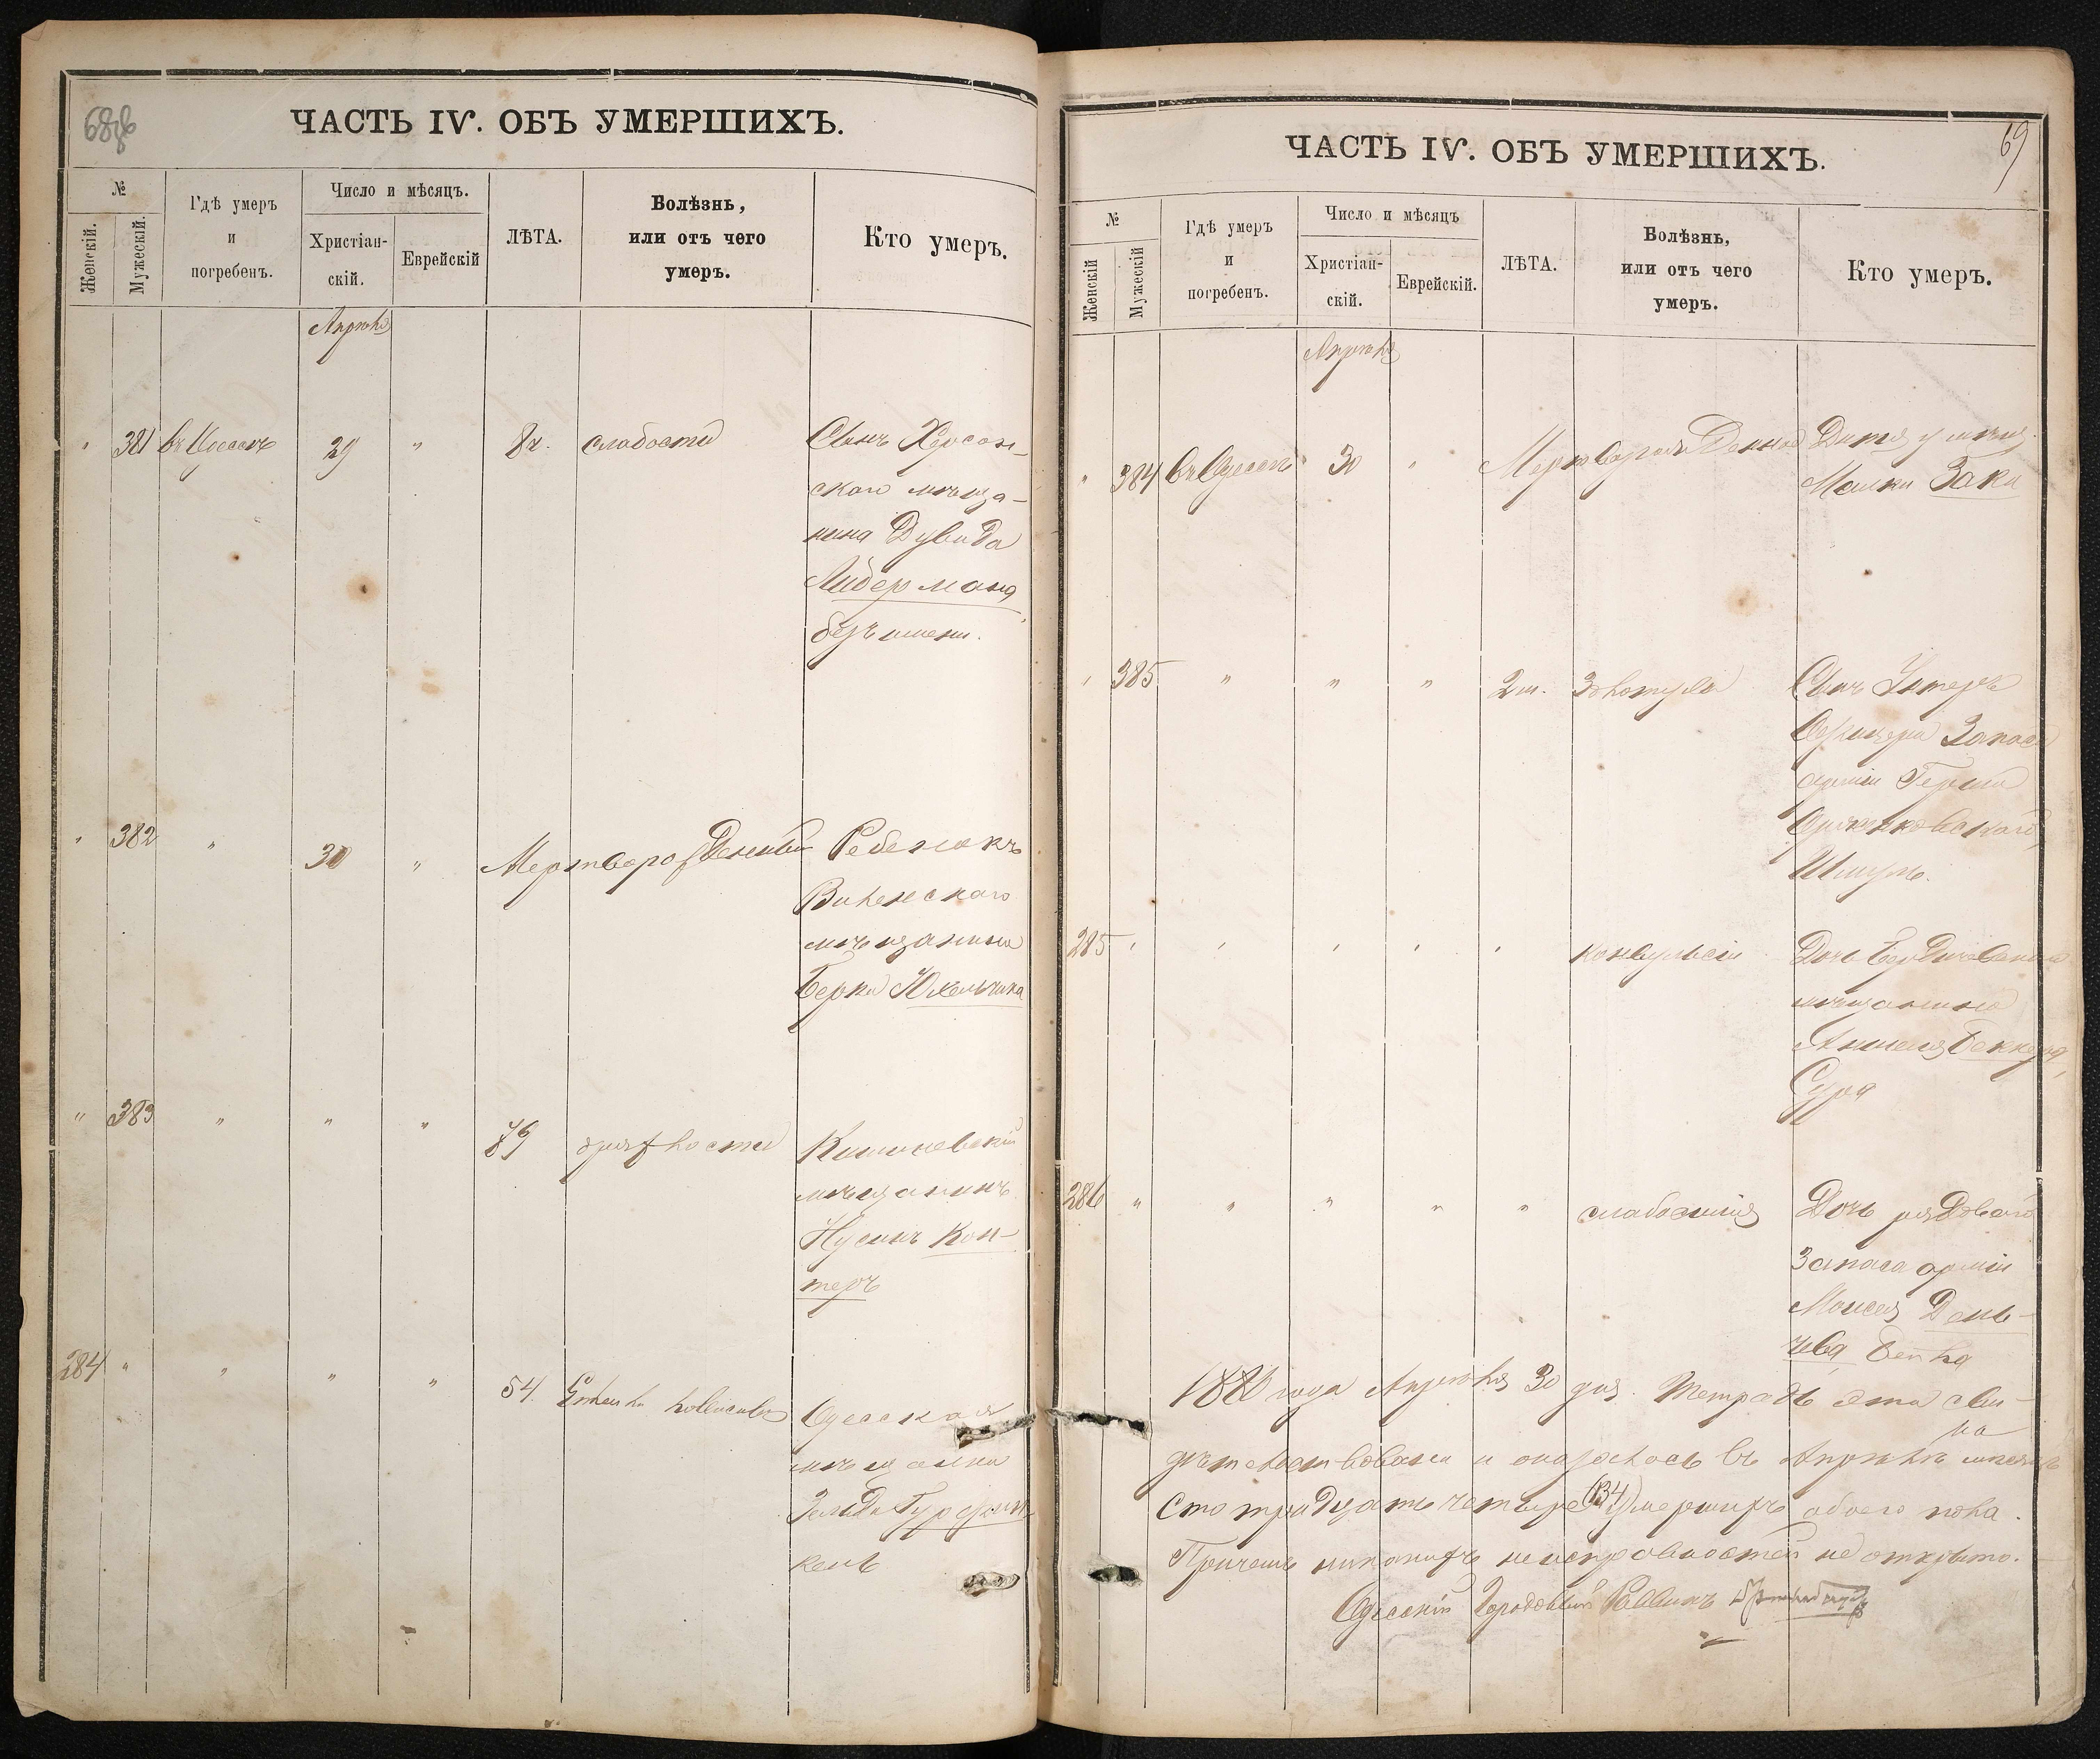 68об
ЧАСТЬ IV. ОБЪ УМЕРШИХЪ.
№
Женскій.
Мужескій.
Гдѣ умеръ
и
погребенъ.
Число и мѣсяцъ.
Христіан-
скій.
Еврейскій
ЛѢТА.
Болѣзнь,
или отъ чего
умеръ.
Кто умеръ.
Апрѣля
" 381 въ Одессѣ 29 " слабости Сынъ Херсон-
скаго мѣща-
нина Дувида
Лидермана
безъ имени.
" 382 " 30 " Мертворожденный Ребенокъ
Виленскаго
мѣщанина
Берки
" 383 " " " 79 дряхлости Кишиневскій
мѣщанинъ
Нусинъ Кон-
теръ
284 " " " " 54 Одесская
мѣщанка
Зельда Гурфин-
кель
69
ЧАСТЬ IV. ОБЪ УМЕРШИХЪ.
№
Женскій
Мужескій
Гдѣ умеръ
и
погребенъ.
Число и мѣсяцъ
Христіан-
скій.
Еврейскій.
ЛѢТА.
Болѣзнь,
или отъ чего
умеръ.
Кто умеръ.
Апрѣля
" 384 въ Одессѣ 30 " Дитя
Малки Зака
" 385 " " " Золотуха Сынъ Унтеръ
Офицера Запаса
арміи Герша
Шмуль.
285 " " " " " конвульсіи Дочь Бердичевскаго
мѣщанина
Аншеля Беккера,
Сура
286 " " " " " слабосилія Дочь рядоваго
Запаса арміи
Моисея День-
чева, Бейла
года Апрѣля 30 дня. Тетрадь эта сви-
дѣтельствована и оказалось въ Апрѣлѣ мѣсяцѣ
Сто тридцать четыре (134) умершихъ обоего пола.
Причемъ никакихъ неисправностей не открыто.
Одесскій Городовой Раввинъ